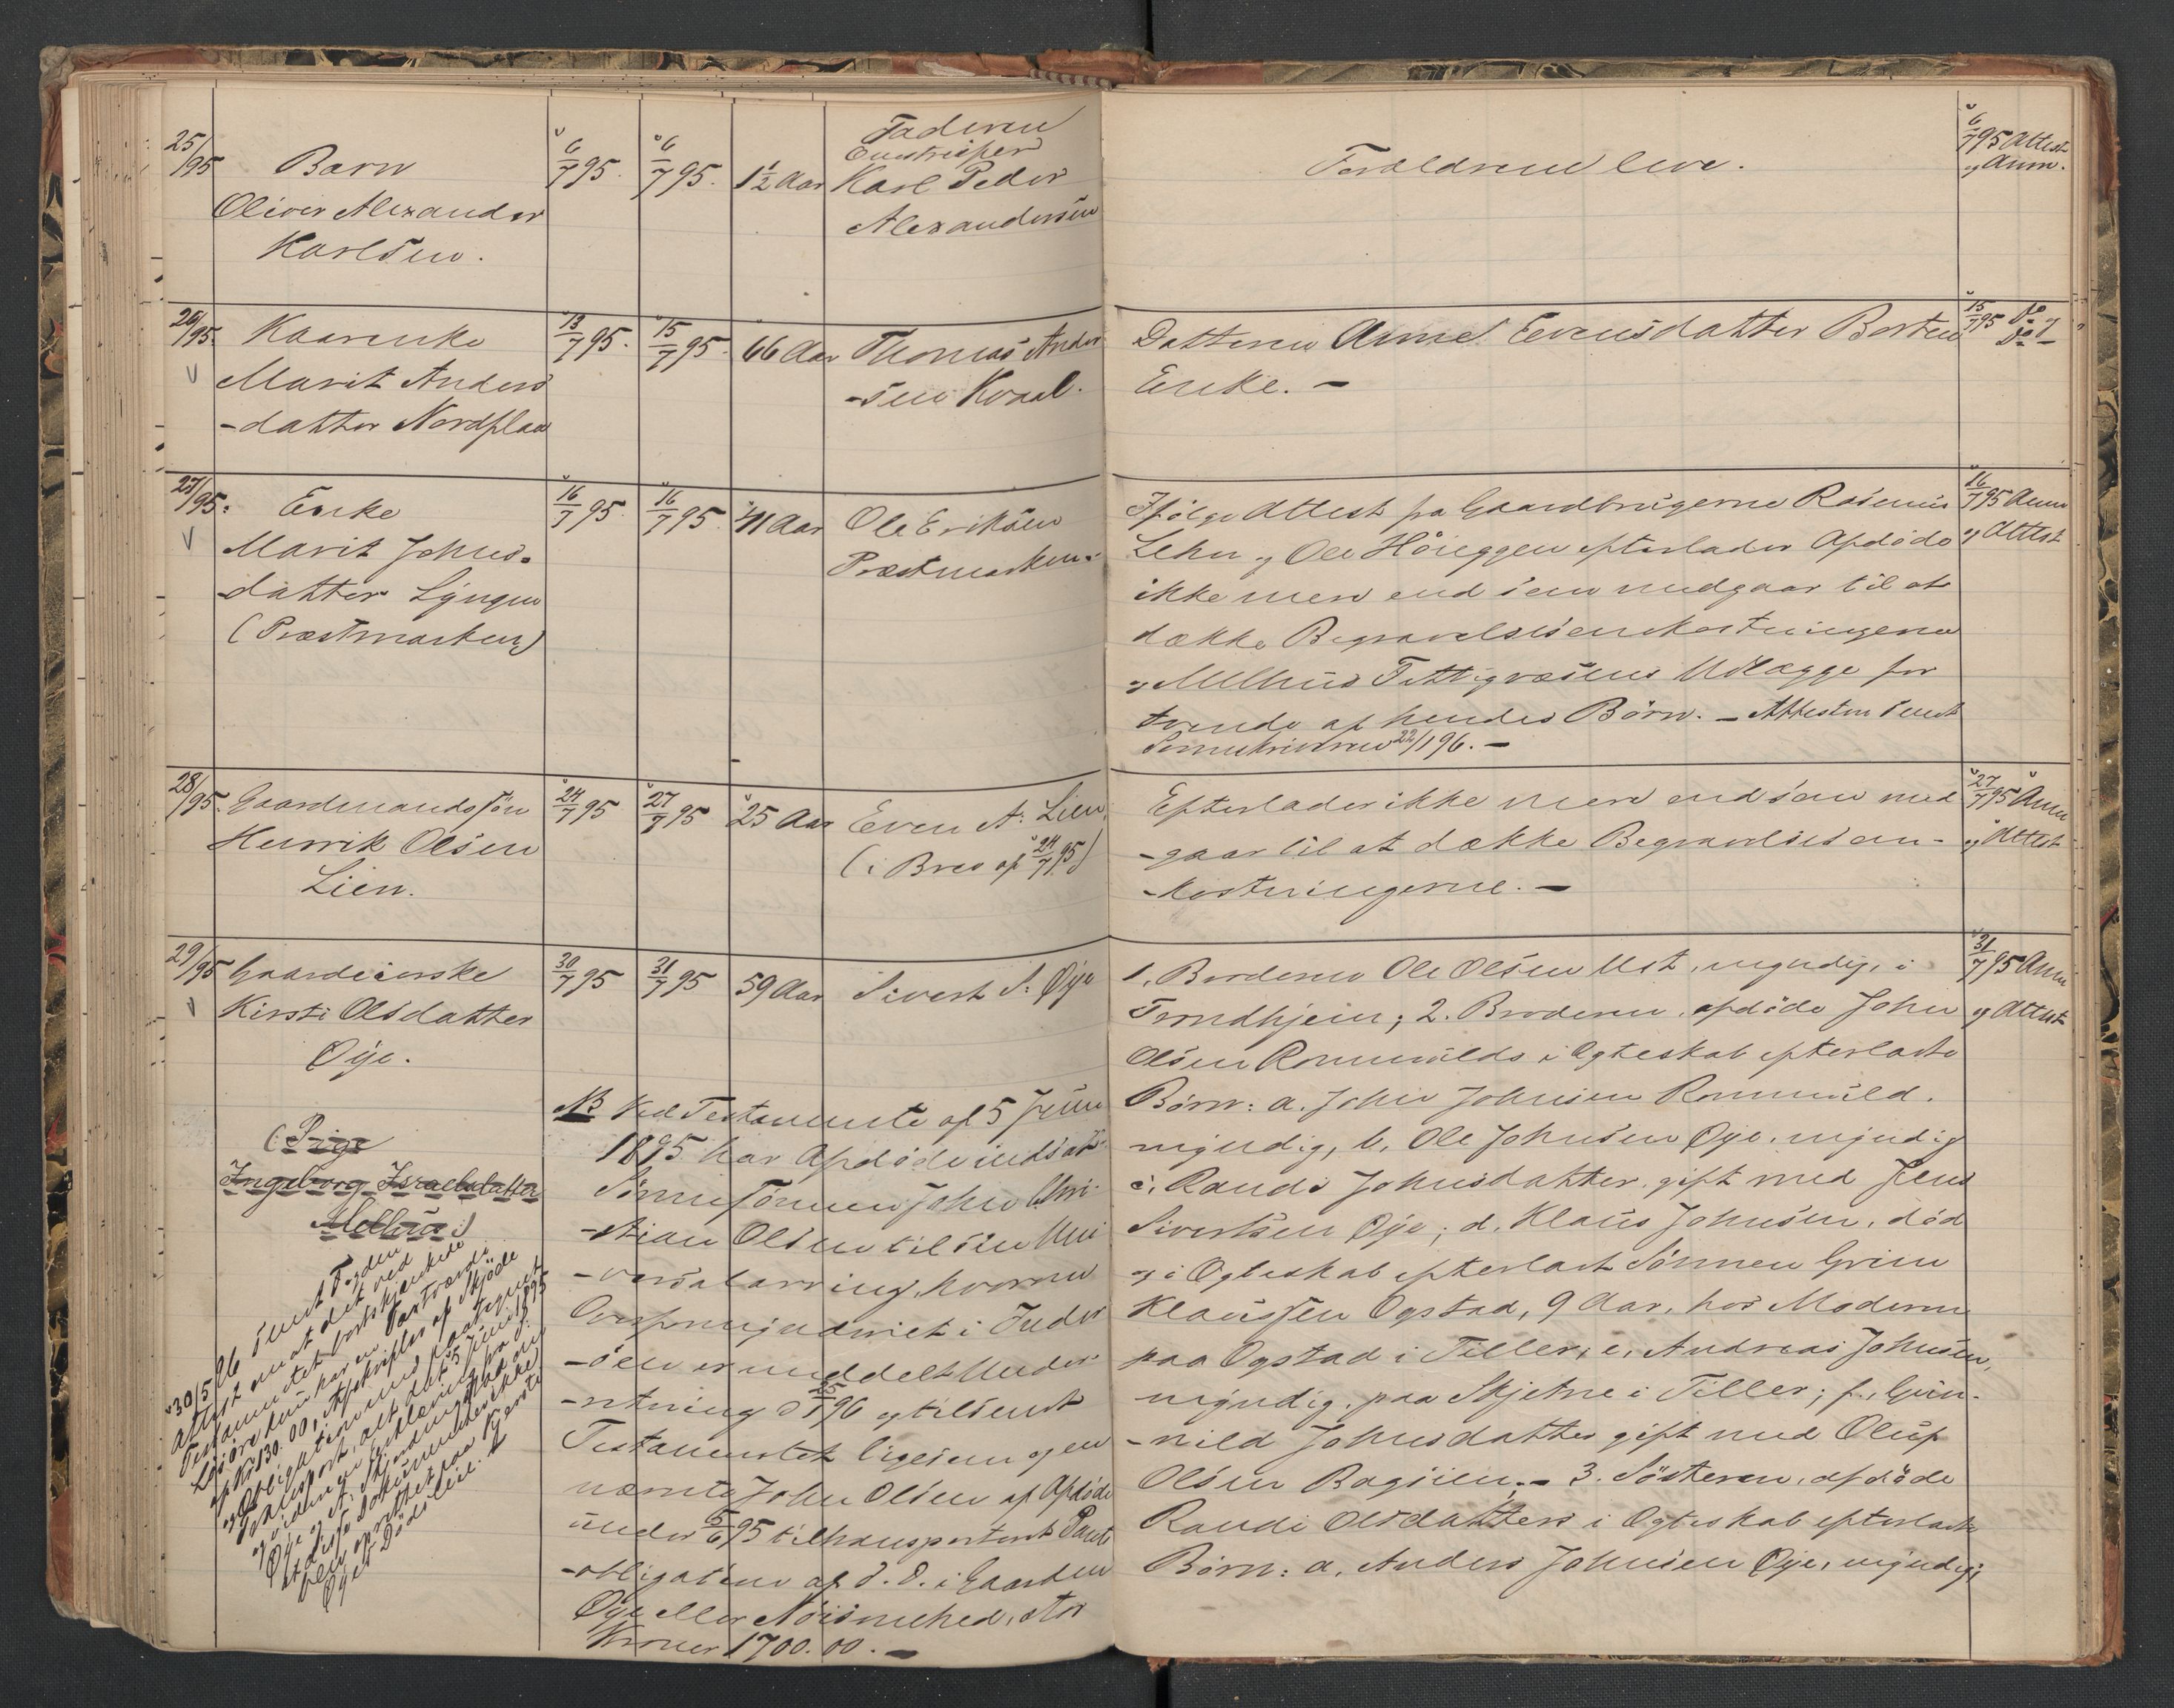 25/95
Barn
Oliver Alexander
Karlsen.
6/7 95.
6/7 95.
1½ Aar
Faderen
Karl Peder
Alexandersen
Forældrene leve.
6/7 95 Attest
og Anm.
26/95.
Kaarenke
Marit Anders
-datter Nordflaa
13/7 95.
15/7 95.
66 Aar
Thomas Ander
-sen Kvaal.
Datteren Anne Evensdatter Borten
Enke. —
15/7 95 Do og
Do
27/95.
Enke
Marit Johns-
datter Lyngen
(Præstmarken)
16/7 95.
16/7 95.
71 Aar
Ole Eriksen
Præstmarken.
Ifølge Attest fra Gaardbrugerne Rasmus
Lehn og Ole Høieggen efterlader Afdøde
ikke mere end som medgaar til at
dække Begravelsesomkostningerne
og Melhus Fattigvæsens Udlægge for
tvende af hendes Børn. — Attesten sendt
Sorenskriveren 22/1 96. —
16/7 95 Anm
og Attest
28/95.
Gaardmandssøn
Henrik Olsen
Lien.
24/7 95
27/7 95
25 Aar
Even A. Lien
(i Brev af 24/7 95)
Efterlader ikke mere end som med
-gaar til at dække Begravelsesom-
-kostningerne. —
27/7 95 Anm
og Attest
29/95
Gaardeierske
Kirsti Olsdatter
Øie.
30/7 95
31/7 95
59 Aar
Sivert S. Øye
1. Broderen Ole Olsen Ust, myndig, i
Trondhjem; 2. Broderen, afdøde John
Olsen Rommulds i Ægteskab efterladte
Børn: a. John Johnsen Rommuld,
myndig, b. Ole Johnsen Øye, myndig
c. Randi Johnsdatter, gift med Jens
Sivertsen Øye; d. Klaus Johnsen, død
og i Ægteskab efterladt Sønnen Grim
Klaussen Ogstad, 9 Aar, hos Moderen
paa Ogstad i Tiller; e. Andreas Johnsen,
myndig, paa Skjetne i Tiller; f. Gun-
-nild Johnsdatter gift med Oluf
Olsen Bagøien; — 3. Søsteren, afdøde
Randi Olsdatters i Ægteskab efterladte
Børn: a. Anders Johnsen Øye, myndig;
31/7 95 Anm
og Attest
NB Ved Testamente af 5 Juni
1895 har Afdøde indsat
Sønnesønnen John Chri-
-stian Olsen til sin Uni
-versalarving, hvorom
Overformynderiet i
er meddelt Under-
-retning d 25/5 96 og tilsendt
Testamentet ligesom og en
nævnte John Olsen af Afdøde
under 5/6 95 tiltransporteret Pante
-obligation af d. d. i Gaarden
Øye eller Nøisomhed, stor
Kroner 1700.00. —
(: Pige
Ingeborg Israelsdatter
Melhus :)
30/5 96 sendt Fogden
Attest om at det ved
Testamentet bortskjænkede
Løsøre kun har en Taxtværdi
af Kr 130.00, Afskrifter af Skjøde
og Obligation med paategnet
Transport, alt dat. 5 Juni 1895
og vidner en Erklæring fra S.
Øye og A. Skjerdingstad om
at disse Dokumenter ikke
blev oprettet paa Kjersti
Øyes Dødsleie.